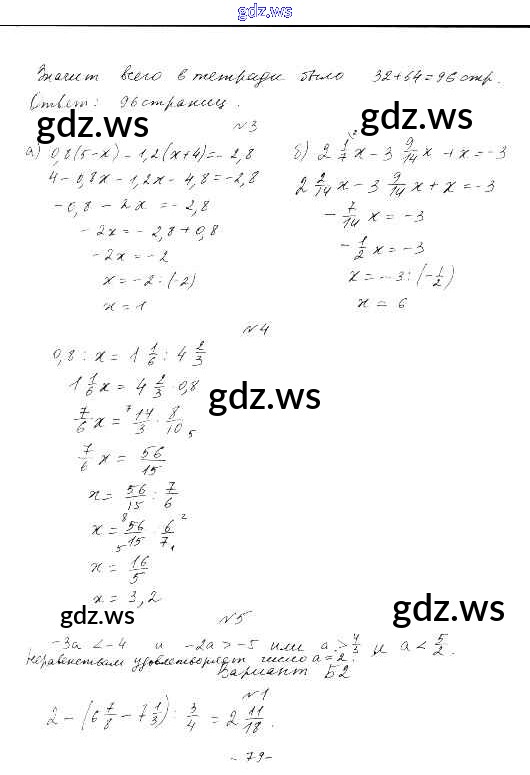 gdz.ws
Значит всего в тетради было 32+64=96 стр.
Ответ: 96 страниц.
gdz.ws gdz.ws
№3
а) 0,8(5-x) - 1,2(x+4) = -2,8
4 - 0,8x - 1,2x - 4,8 = -2,8
-0,8 - 2x = -2,8
-2x = -2,8 + 0,8
-2x = -2
x = -2 : (-2)
x = 1
б) 2 1/7 x - 3 9/14 x + x = -3
2 2/14 x - 3 9/14 x + x = -3
- 7/14 x = -3
- 1/2 x = -3
x = -3 : (-1/2)
x = 6
№4
0,8 : x = 1 1/6 : 4 2/3
1 1/6 x = 4 2/3 · 0,8
gdz.ws
7/6 x = 14/3 · 8/10
7/6 x = 56/15
x = 56/15 : 7/6
x = 56/15 · 6/7
x = 16/5
x = 3,2
gdz.ws gdz.ws
№5
-3a < -4 и -2a > -5 или a > 4/3 и a < 5/2.
Неравенствам удовлетворяет число a = 2.
Вариант Б2
№1
2 - (6 7/8 - 7 1/3) : 3/4 = 2 11/18.
- 79 -